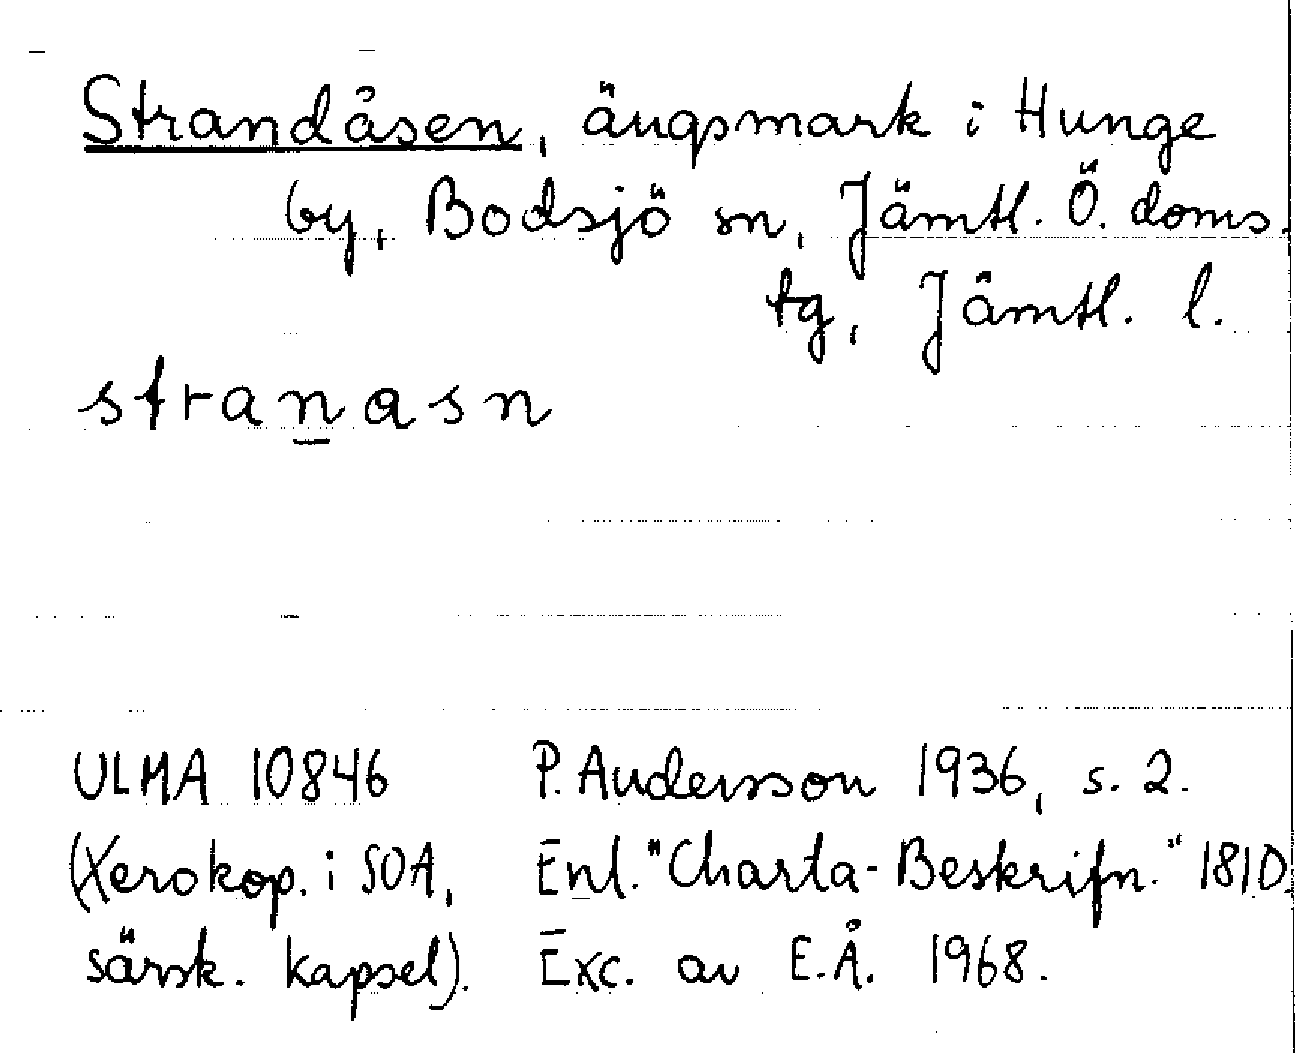 Strandåsen, ängsmark i Hunge
by, Bodsjö sn, Jämtl. Ö. doms.
tg, Jämtl. l.
stranasn
ULMA 10846 P. Andersson 1936, s. 2.
(Xerokop. i SOA, Enl. "Charta-Beskrifn." 1810.
särsk. kapsel). Exc. av E.Å. 1968.